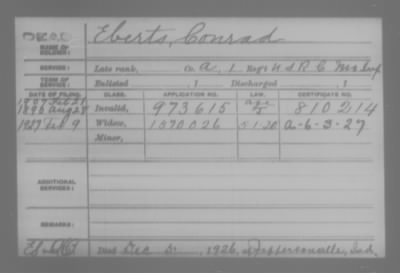 DEAD
NAME OF SOLDIER:
Eberts, Conrad
SERVICE:
Late rank, Co. A, 1 Reg't U S R C Mo Inf
TERM OF SERVICE:
Enlisted , 1 Discharged , 1
DATE OF FILING. CLASS. APPLICATION NO. LAW. CERTIFICATE NO.
1907 Feb 21
1896 Aug 28 Invalid, 973615 810214
1927 Feb 9 Widow, 1570026 5-1-20 A-6-3-27
Minor,
ADDITIONAL SERVICES:
REMARKS:
Died Dec , 1926, at Jeffersonville, Ind.